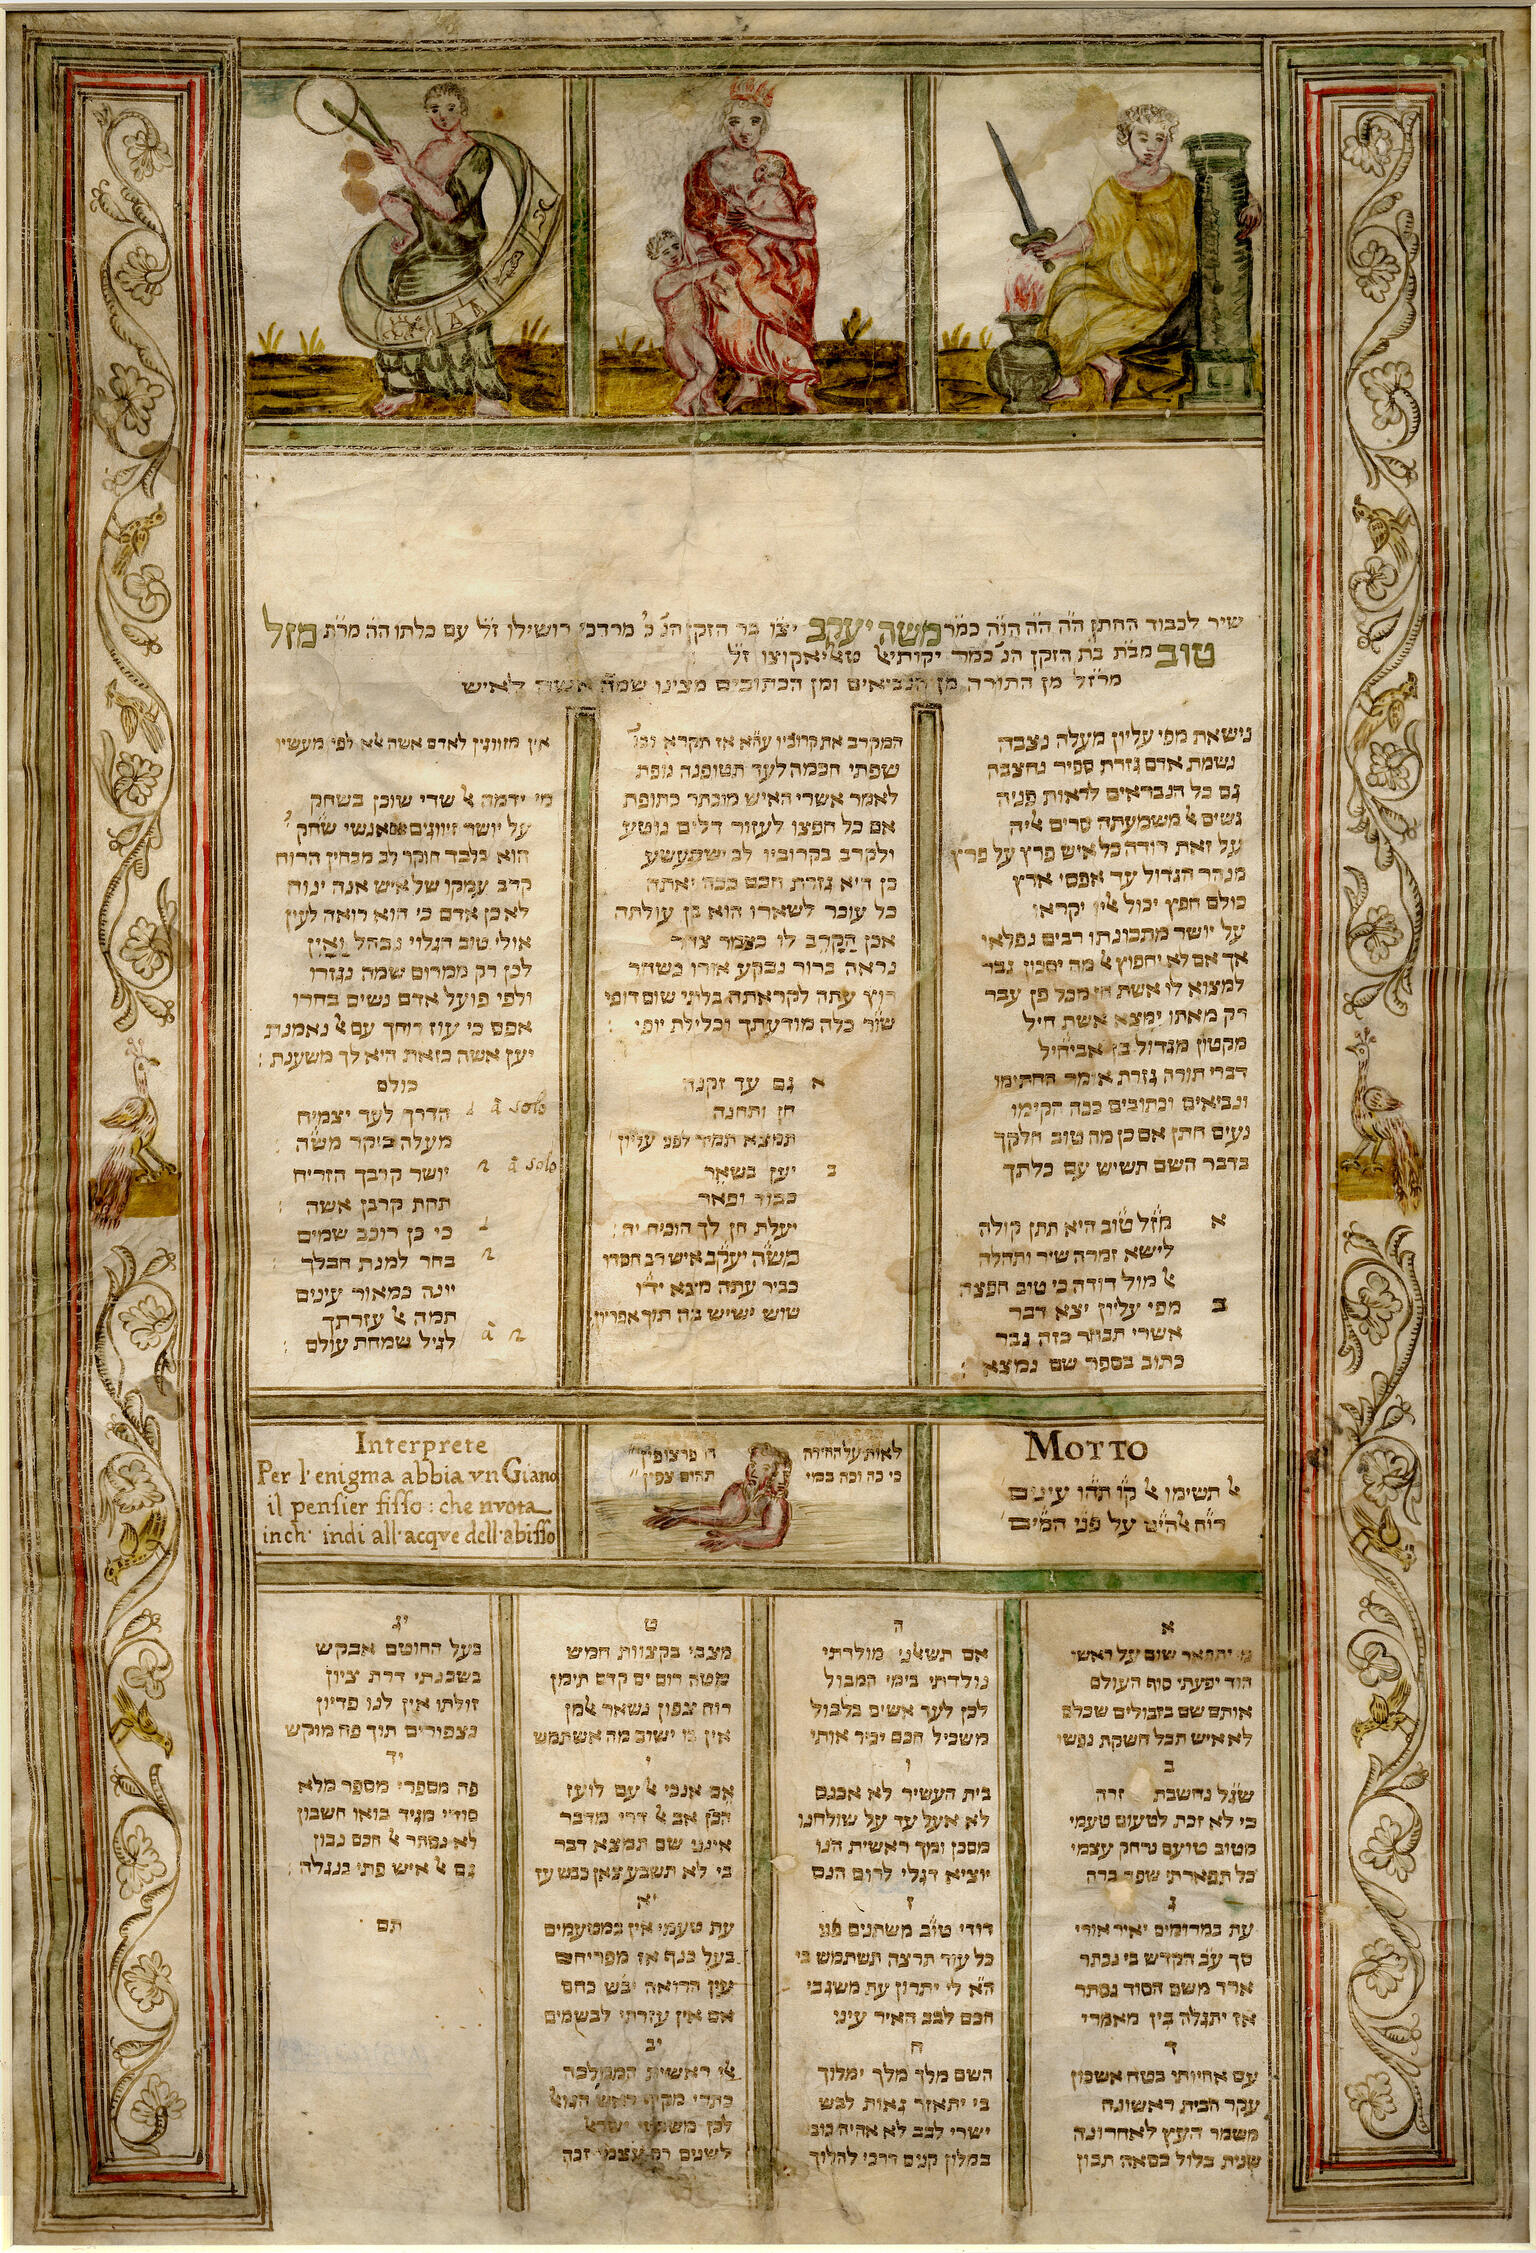 שיר לכבוד החתן משה יעקב יצ"ו בר הזקן מרדכי רושילו ז"ל עם כלתו מרת מזל
טוב מב"ת בת הזקן יקותיאל ז"ל
מן התורה מן הנביאים ומן הכתובים מצינו אשה לאיש
נישאת מפי עליון מעלה נצבה
נשמת אדם גזרת ספיר נחצבה
גם כל הנבראים לראות פניה
נשים אל משמעתה סרים אליה
על זאת דודה כל איש פרץ על פרץ
מנהר הגדול עד אפסי ארץ
כולם חפץ יכול אליו יקראו
על יושר מתכונתו רבים נפלאו
אך אם לא יחפוץ אל מה יסכון גבר
למצוא לו אשת חן מכל פן עבר
רק מאתו ימצא אשת חיל
מקטון מגדול בן אביחיל
דברי תורה גזרת אומר החתימו
ונביאים וכתובים ככה הקימו
נעים חתן אם כן מה טוב חלקך
בדבר השם תשיש עם כלתך
א מזל טוב היא תתן קולה
לישא זמרה שיר ותהלה
אל מול דודה כי טוב חפצה
ב מפי עליון יצא דבר
אשרי תבחר כזה גבר
כתוב בספר שם נמצא :
המקרב את קרוביו עליו אז תקרא
שפתי חכמה לעד תטופנה נופת
לאמר אשרי האיש מוכתר כתופת
אם כל חפצו לעזור דלים נוטע
ולקרב בקרוביו לב ישתעשע
כן היא גזרת חכם ככה יאתה
כל עוכר לשארו הוא בן עולתה
אכן הקרב לו כצמר צחר
נראה ברור נבקע אורו כשחר
רוץ עתה לקראתה בלתי שום דופי
שור כלה מודעתך וכלילת יופי :
א גם עד זקנה
חן ותחנה
תמצא תמיד לפני עליון
ב יען בשאר
כבוד ופאר
יעלת חן לך הוכיח יה :
משה יעקב איש רב חסדו
כביר עתה מצא ידו
שוש ישיש בה תוך אפריון
אין מזווגין לאדם אשה אלא לפי מעשיו
מי ידמה אל שדי שוכן בשחק
על יושר זיווגים אנשי שחק
הוא בלבד חוקר לב מבחין הרוח
קרב עמקו של איש אנה ינוח
לא כן אדם כי הוא רואה לעין
אולי טוב הגלוי נבהל ואין
לכן רק ממרום שמה נגזרו
ולפי פועל אדם נשים בחרו
אפס כי עוז רוחך עם אל נאמנת
יען אשה כזאת היא לך משענת :
כולם
הדרך לעד יצמיח 1 à solo
מעלה ביקר משה :
יושר קרבך הזריח 2 à solo
תחת קרבן אשה :
כי כן רוכב שמים 1
בחר למנת חבלך : 2
יונה כמאור עינים
תמה אל עזרתך
לגיל שמחת עולם : à 2
MOTTO
אל תשימו אל קו תהו עינים
רוח אלהים על פני המים
לאות על החידה דו פרצופין
כי כה וכה במי תהום צפין
Interprete
Per l'enigma abbia vn Giano
il pensier fisso : che nvota
inch' indi all' acqve dell' abisso
א
יתפאר שום על ראשי
הוד יפעתי סוף העולם
אותם שם בזבולים שכלם
לא איש תבל חשקת נפשי
ב
שגל נחשבת זרה
כי לא זכת לטעום טעמי
מטוב טועם נרחק עצמי
כל תפארתי שפר ברה
ג
עת במרומים יאיר אורי
סך עב הקדש בי נכתר
אור משם הסוד נסתר
אז יתגלה בין מאמרי
ד
עם אחיותי בטח אשכון
עקר הבית ראשונה
משמר העץ לאחרונה
שנית בלול כסאה תכון
ה
אם תשאלני מולדתי
נולדתי בימי המבול
לכן לעד אשים בלבול
משכיל חכם יכיר אותי
ו
בית העשיר לא אכנס
לא אעל עד על שולחנו
מסכן ומך ראשית הונו
יוציא דגלי לרום הנס
ז
דודי טוב משתנים פני
כל עוד תרצה תשתמש בי
הא לי יתרון עת משגבי
חכם לבב האיר עיני
ח
השם מלך מלך ימלוך
כי יתאזר גאות לבש
ישרי לבב לא אהיה
במלון קנים דרכי להלוך
ט
מצבי בקצוות חמש
מטה רום ים קדם תימן
רוח צפון נשאר אלמן
אין בו ישוב מה אשתמש
י
אב אנכי אל עם לועז
הבן אב אל דרי מדבר
אינני שם תמצא דבר
כי לא תשבע צאן כבש עז
יא
עת טעמי אין במטעמים
בעל כנף אז מפריחם
עין הרואה יבש כחם
אם אין עזרתי לבשמים
יב
ראשית הממלכה
כתרי מקיף ראש
לכן משפטי ישראל
לשנים רם עצמי זכה
יג
בעל החוטם אבקש
בשכנתי דרת ציון
זולתו אין לנו פדיון
כצפורים תוך פח מוקש
יד
פה מספרי מספר מלא
סודי מגיד בואו חשבון
לא נסתר אל חכם נבון
גם אל איש פתי בנגלה :
תם